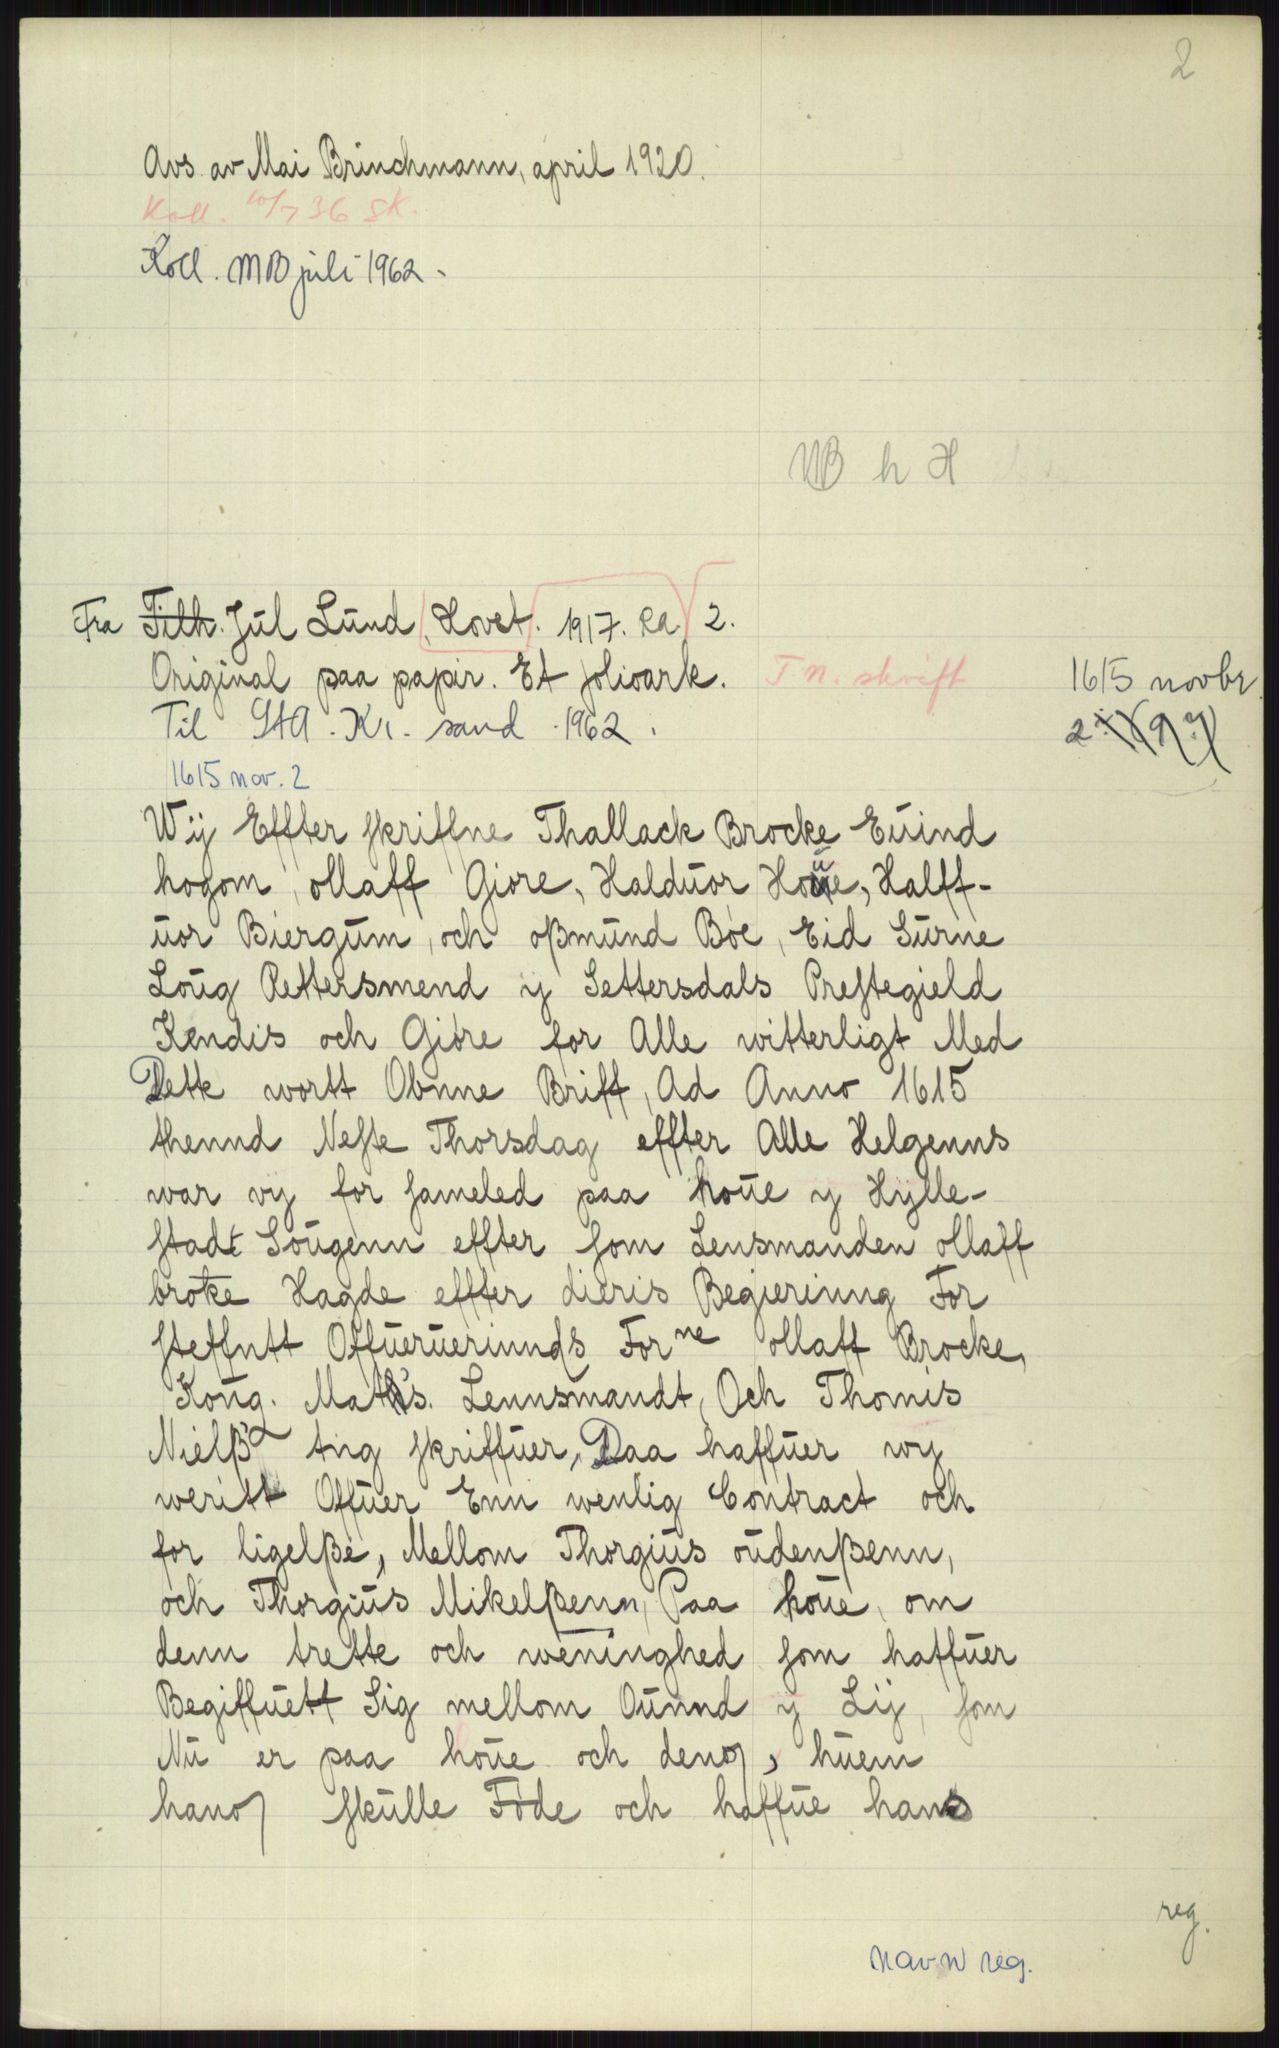 2
Avs. av Mai Brinchmann, april 1920.
Koll. 10/7 36 SK.
Koll. MB juli 1962.
MB h H
Fra Tilh. Jul Lund, Hovet. 1917. RA 2.
Original paa papir. Et folioark. T n. skrift
1615 novbr.
Til StA. Kr. sand 1962.
2
1615 nov. 2
Wÿ Effter skriffne Thallack Brocke Euind
hogom, ollaff Giore, Halduor Houe, Halff-
uor Biergum, och oßmund Bøe, Eid Surne
Loug Rettersmend y Settersdals Prestegield
Kendis och Giøre for Alle witterligt Med
Dette wortt Obnne Briff, Ad Anno 1615
thennd Neste Thorsdag effter Alle Helgenns
war vy for sameled paa houe y Hylle-
stadt Sougenn effter som Lensmanden ollaff
broke Hagde effter dieris Begierinng For
steffntt Offueruerinnds Forne ollaff Brocke,
Kong. Matts. Lennsmandt, Och Thomis
Nielß ting skriffuer, Daa haffuer wy
weritt Offuer Enn wenlig Contract och
for ligelße, Mellom Thorgius oudenßenn,
och Thorgius Mikelßenn, Paa houe, om
denn trette och weninghed som haffuer
Begiffuett Sig mellom Ounnd y Lij, som
Nu er paa houe och denn, huem
hann skulle Føde och haffue hans
reg.
navn reg.